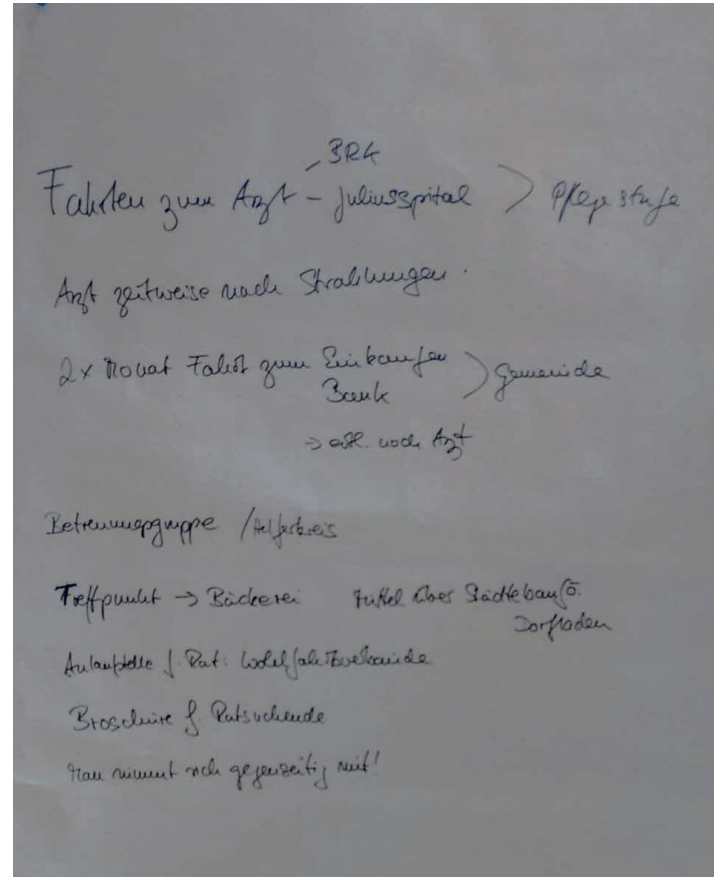 BRK
Fahrten zum Arzt - Juliusspital > Pflegestufe
Arzt zeitweise nach Strahlungen.
2x Monat Fahrt zum Einkaufen
Bank > Gemeinde
→ evtl. noch Arzt
Betreuungsgruppe / Helferkreis
Treffpunkt → Bäckerei Mittel über Städtebaufö.
Dorfladen
Anlaufstelle f. Rat: Wohlfahrtsverbände
Broschüre f. Ratsuchende
Man nimmt sich gegenseitig mit!